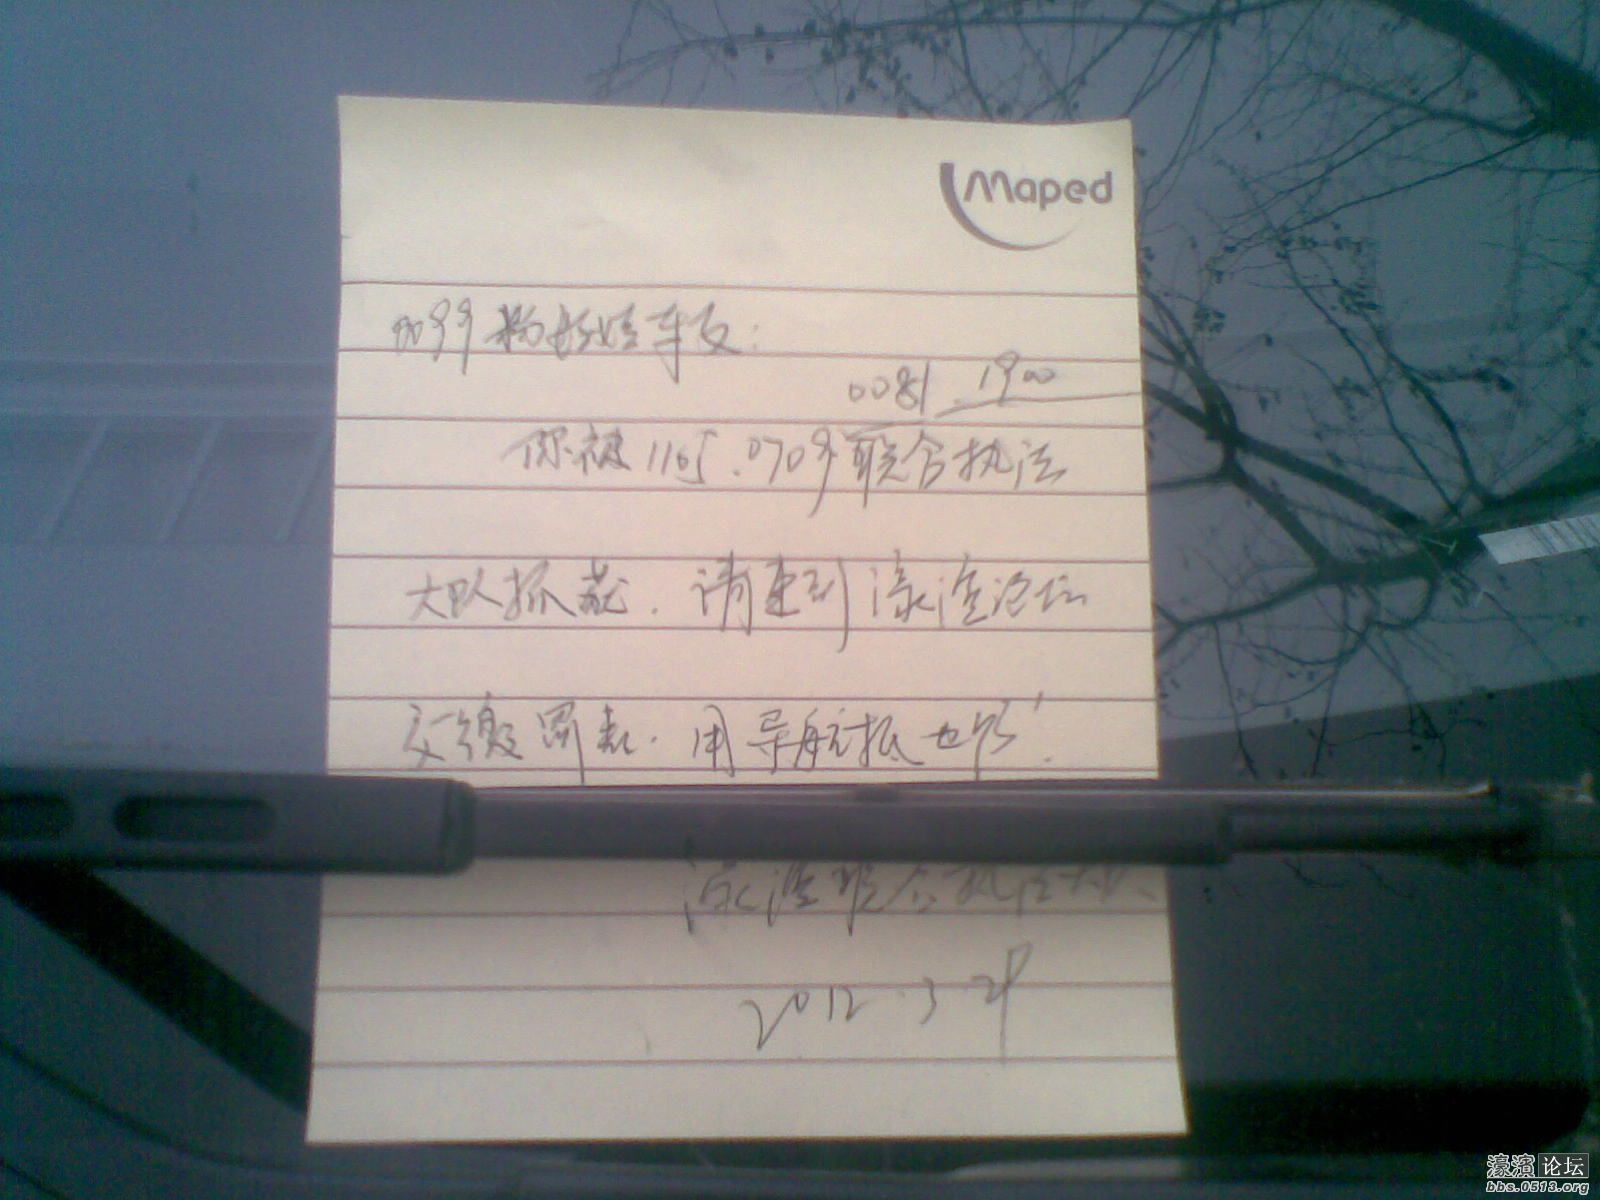 Maped
车友:
0081 1900
你被1165.0709联合执法
大队抓获.请速到濠滨论坛
交缴罚款.用导航抵也行!
濠滨联合执法大队
2012.3.29
濠滨论坛
bbs.0513.org